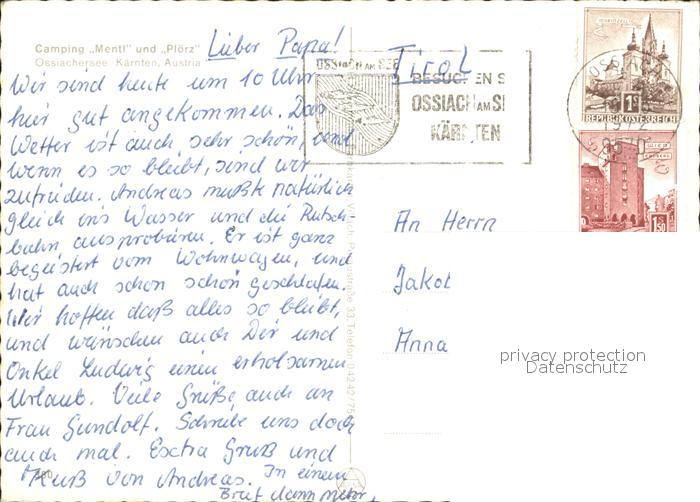 Camping „Mentl" und „Plörz"
Ossiachersee Kärnten, Austria
Lieber Papa!
Wir sind heute um 10 Uhr
hier gut angekommen. Das
Wetter ist auch sehr schön, und
wenn es so bleibt, sind wir
zufrieden. Andreas mußte natürlich
gleich ins Wasser und die Rutsch-
bahn ausprobieren. Er ist ganz
begeistert vom Wohnwagen, und
hat auch schon schön geschlafen.
Wir hoffen daß alles so bleibt,
und wünschen auch Dir und
Onkel Ludwig einen erholsamen
Urlaub. Viele Grüße auch an
Frau Gundolf. Schreibe uns doch
auch mal. Extra Gruß und
Kuß von Andreas. In einem
Brief dann mehr.
Tirol
OSSIACH AM SEE
BESUCHEN S
OSSIACH AM S
KÄRNTEN
1S
REPUBLIK ÖSTERREICH
1972
1.50
An Herrn
Jakob
Anna
privacy protection
Datenschutz